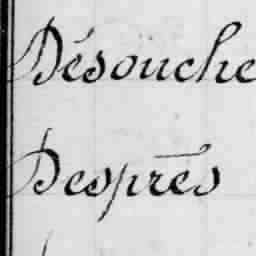 Désouche
Desprēs